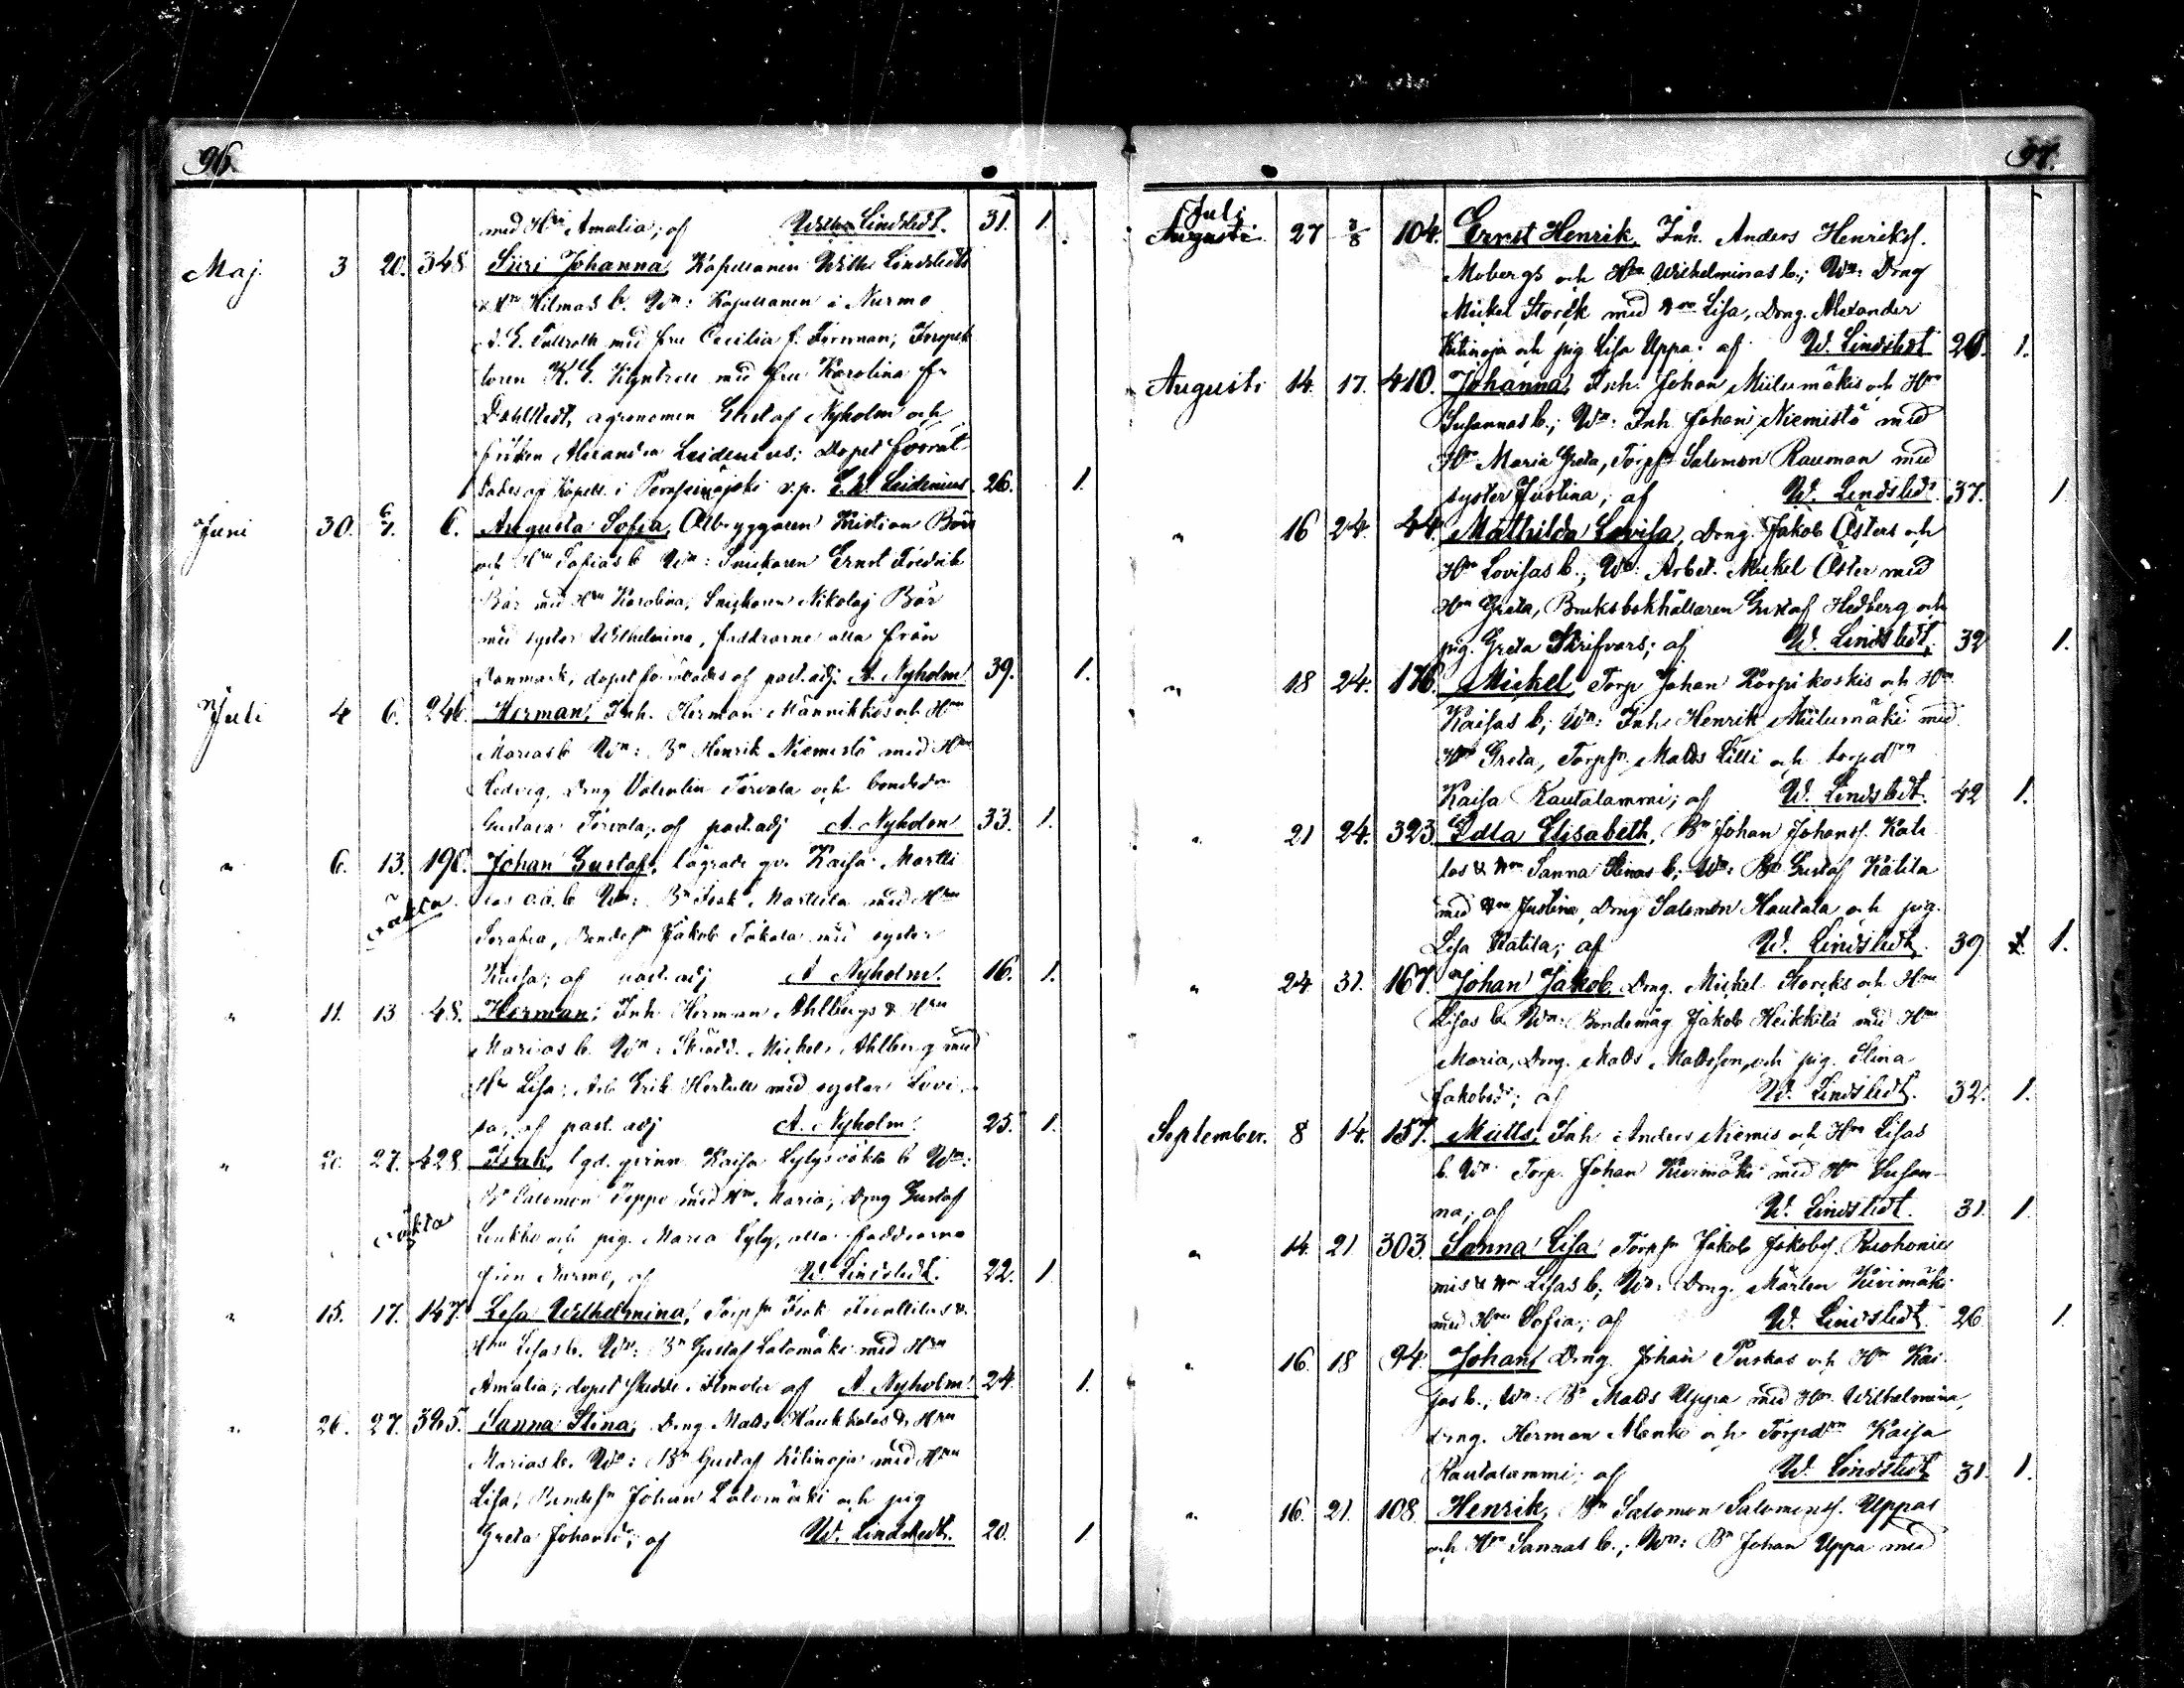 96.
med Hu Amalia; af Wilh. Lindstedt. 31. 1.
Maj. 3 20. 348 Siiri Johanna, Kapellanen Wilh. Lindstedts
& Hu Hilmas b. Wn: Kapellanen i Nurmo
med fru Cecilia f. Forsman; Inspek
toren K. E. med fru Karolina f.
Dahlstedt, agronomen Gustaf Nyholm och
fröken Alexandra Leidenius; Dopet förrät
tades af Kapell. i Peräseinäjoki v.p. Leidenius. 26. 1.
Juni 30. 6/7. 6. Augusta Sofia, Ölbryggaren Kristian Bärs
och Hu Sofias b. Wn: Snickaren Ernst Fredrik
Bär med Hu Karolina, Snickaren Nikolaj Bär
med syster Wilhelmina, faddrarne alla från
Danmark, dopet förrättades af past. adj. A. Nyholm 39. 1.
Juli 4 6. 246. Herman, Inh. Herman Männikkös och Hu
Marias b. Wn: Bn Henrik Niemistö med Hu
Hedvig, Dreng Valentin Törvola och bondedr
Gustava Törvola; af past. adj A. Nyholm 33. 1.
" 6. 13. 190. Johan Gustaf, lägrade qv. Kaisa Martti
las o.ä. b. Wn: Bn Isak Marttila med Hu
oäkta
Serafia, Bondesn Jakob Jokela med syster
Kaisa; af past. adj A. Nyholm. 16. 1.
" 11. 13 48. Herman; Inh. Herman Ahlbergs & Hu
Marias b. Wn: Skrädd. Michel Ahlberg med
Hu Lisa; Arb. Erik Hertull med syster Lovi-
sa; af past. adj A. Nyholm. 25. 1.
" 20. 27. 428. Isak, lgd. qvinn Kaisa Lylys oäkta b. Wn:
Bn Salomon Seppo med Hu Maria; Dreng Gustaf
oäkta
Luukko och pig. Maria Lyly, alla faddrarna
från Nurmo, af W. Lindstedt. 22. 1
" 15. 17. 147. Lisa Wilhelmina, Torpsn Isak &
Hu Lisas b. Wn: Bn Gustaf Latomäki med Hu
Amalia; dopet skedde i Ilmola af A. Nyholm. 24. 1.
" 26. 27. 325. Sanna Stina, Dreng Matts Haukkalas & Hu
Marias b. Wn: Bn Gustaf Kitinoja med Hu
Lisa; Bondesn Johan Latomäki och pig
Greta Johansdr; af W. Lindstedt. 20. 1
97.
Juli
Augusti 27 3/8 104. Ernst Henrik, Inh. Anders Henrikss.
Mobergs och Hu Wilhelminas b.; Wn: Dreng
Mickel Storck med Hu Lisa, Dreng. Alexander
Kitinoja och pig Lisa Uppa: af W. Lindstedt 26. 1.
Augusti 14. 17. 410. Johanna, Inh. Johan Miilumäkis och Hu
Susannas b.; Wn: Inh. Johan Niemistö med
Hu Maria Greta, Torpsn Salomon Rauman med
syster Justina; af W. Lindstedt. 37. 1
" 16 24. 44. Mathilda Lovisa, Dreng. Jakob Östers och
Hu Lovisas b.; Wn: Arbet. Mickel Öster med
Hu Greta, Bruksbokhållaren Gustaf Hedberg och
pig. Greta Skrifvars; af W. Lindstedt; 32 1.
" 18 24. 176. Mickel, Torp Johan Korpikoskis och Hu
Kaisas b; Wn: Inh Henrik Miilumäki med
Hu Greta, Torpsn. Matts Lilli och torpdrn
Kaisa Rautalammi; af W. Lindstedt. 42 1.
" 21 24. 323. Edla Elisabeth, Bn Johan Johanss. Käti
las & Hu Sanna Stinas b; Wn: Bn Gustaf Kätila
med Hu Justina, Dreng Salomon Hautala och pig.
Lisa Katila; af W. Lindstedt. 39 1.
" 24 31. 167. Johan Jakob, Dreng. Mickel Storcks och Hu
Lisas b. Wn: Bondemåg Jakob Heikkilä med Hu
Maria, Dreng. Matts Mattsson, och pig. Stina
Jakobsdr; af W. Lindstedt. 32. 1.
September. 8 14. 157. Matts, Inh. Anders Niemis och Hu Lisas
b. Wn Torp. Johan Kivimäki med Hu Susan-
na; af W. Lindstedt. 31. 1.
" 14. 21 303. Sanna Lisa, Torpsn Jakob Jakobs. Ruohonie
mis & Hu Lisas b; Wn: Dreng. Mårten Kivimäki
med Hu Sofia; af W. Lindstedt. 26 1.
" 16. 18 94. Johan, Dreng. Johan Puskas och Hu Kai
sas b.; Wn: Bn Matts Uppa med Hu Wilhelmina,
dreng. Herman Menko och Torpdrn Kaisa
Rautalammi; af W. Lindstedt 31. 1.
" 16. 21. 108. Henrik, Bn Salomon Salomonss. Uppas
och Hu Sannas b.; Wn: Bn Johan Uppa med